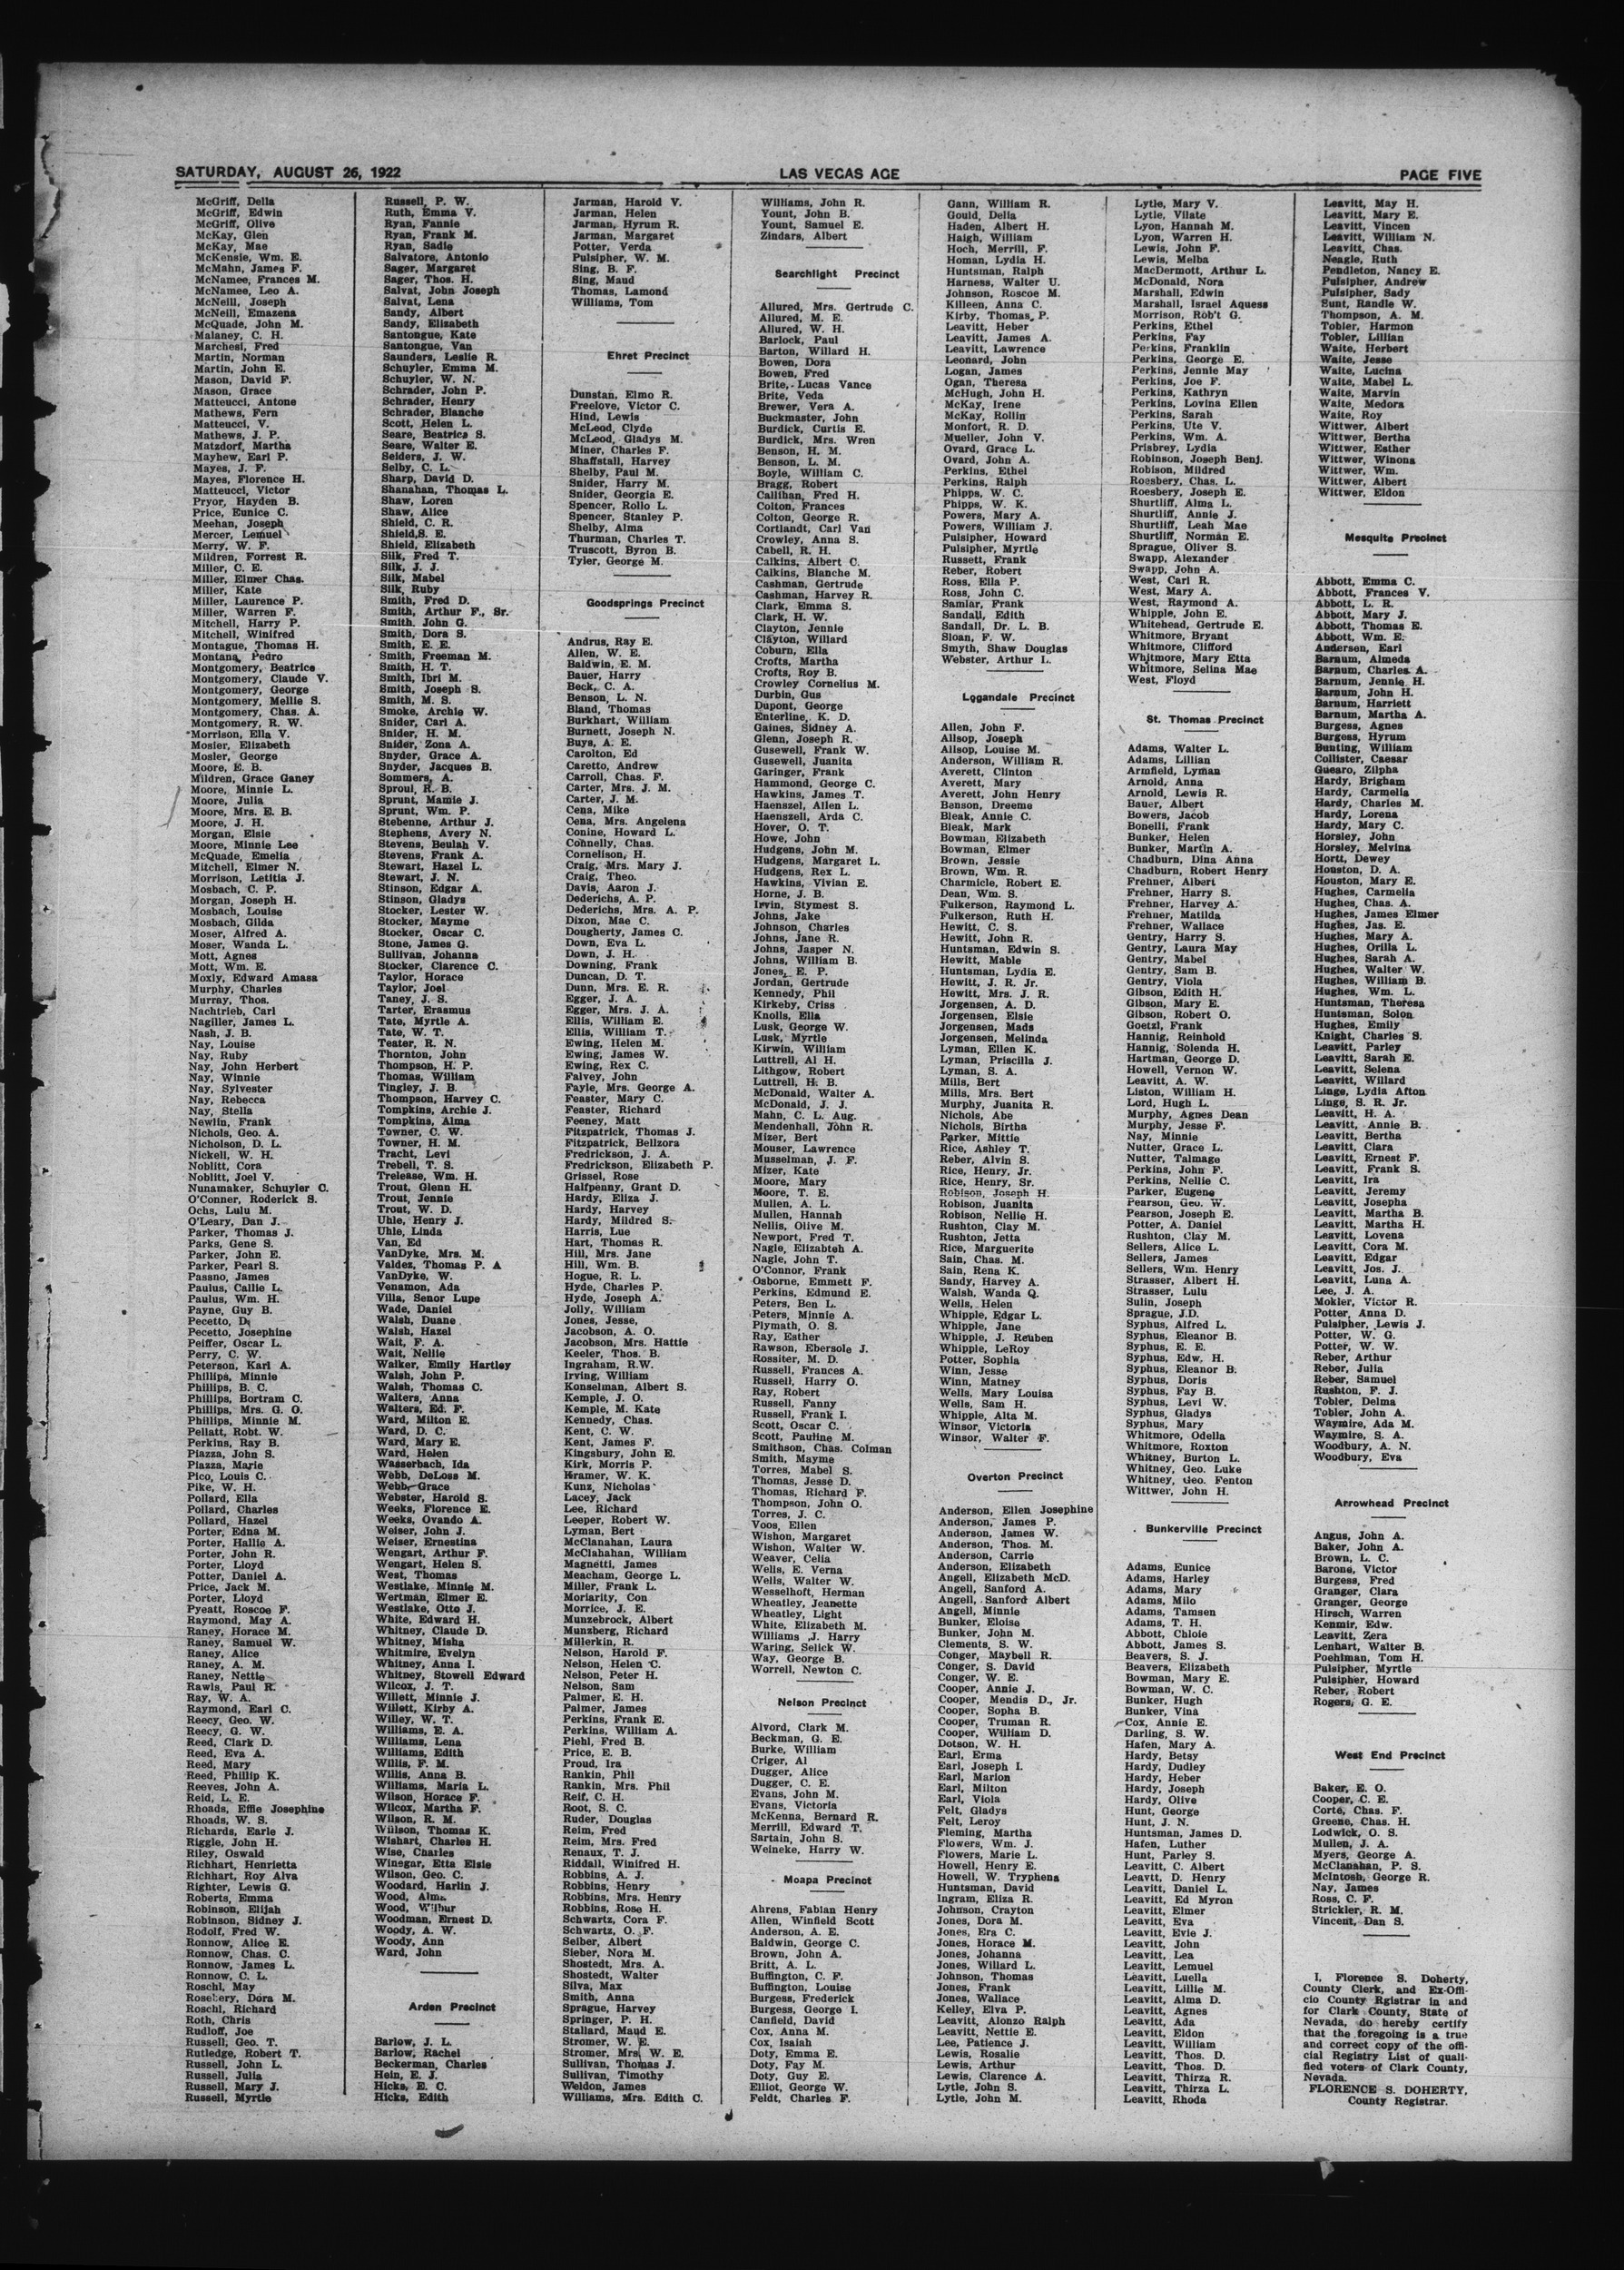 SATURDAY, AUGUST 26, 1922
LAS VEGAS AGE
PAGE FIVE
McGriff, Della
McGriff, Edwin
McGriff, Olive
McKay, Glen
McKay, Mae
McKensie, Wm. E.
McMahn, James F.
McNamee, Frances M.
McNamee, Leo A.
McNeill, Joseph
McNeill, Emazena
McQuade, John M.
Malaney, C. H.
Marchesi, Fred
Martin, Norman
Martin, John E.
Mason, David F.
Mason, Grace
Matteucci, Antone
Mathews, Fern
Matteucci, V.
Mathews, J. P.
Matzdorf, Martha
Mayhew, Earl P.
Mayes, J. F.
Mayes, Florence H.
Matteucci, Victor
Pryor, Hayden B.
Price, Eunice C.
Meehan, Joseph
Mercer, Lemuel
Merry, W. F.
Mildren, Forrest R.
Miller, C. E.
Miller, Elmer Chas.
Miller, Kate
Miller, Laurence P.
Miller, Warren F.
Mitchell, Harry P.
Mitchell, Winifred
Montague, Thomas H.
Montana, Pedro
Montgomery, Beatrice
Montgomery, Claude V.
Montgomery, George
Montgomery, Mellie S.
Montgomery, Chas. A.
Montgomery, R. W.
Morrison, Ella V.
Mosler, Elizabeth
Mosler, George
Moore, E. B.
Mildren, Grace Ganey
Moore, Minnie L.
Moore, Julia
Moore, Mrs. E. B.
Moore, J. H.
Morgan, Elsie
Moore, Minnie Lee
McQuade, Emelia
Mitchell, Elmer N.
Morrison, Letitia J.
Mosbach, C. P.
Morgan, Joseph H.
Mosbach, Louise
Mosbach, Gilda
Moser, Alfred A.
Moser, Wanda L.
Mott, Agnes
Mott, Wm. E.
Moxly, Edward Amasa
Murphy, Charles
Murray, Thos.
Nachtrieb, Carl
Nagiller, James L.
Nash, J. B.
Nay, Louise
Nay, Ruby
Nay, John Herbert
Nay, Winnie
Nay, Sylvester
Nay, Rebecca
Nay, Stella
Newlin, Frank
Nichols, Geo. A.
Nicholson, D. L.
Nickell, W. H.
Noblitt, Cora
Noblitt, Joel V.
Nunamaker, Schuyler C.
O'Conner, Roderick S.
Ochs, Lulu M.
O'Leary, Dan J.
Parker, Thomas J.
Parks, Gene S.
Parker, John E.
Parker, Pearl S.
Passno, James
Paulus, Callie L.
Paulus, Wm. H.
Payne, Guy B.
Pecetto, D.
Pecetto, Josephine
Peiffer, Oscar L.
Perry, C. W.
Peterson, Karl A.
Phillips, Minnie
Phillips, B. C.
Phillips, Bortram C.
Phillips, Mrs. G. O.
Phillips, Minnie M.
Pellatt, Robt. W.
Perkins, Ray B.
Piazza, John S.
Piazza, Marie
Pico, Louis C.
Pike, W. H.
Pollard, Ella
Pollard, Charles
Pollard, Hazel
Porter, Edna M.
Porter, Hallie A.
Porter, John R.
Porter, Lloyd
Potter, Daniel A.
Price, Jack M.
Porter, Lloyd
Pyeatt, Roscoe F.
Raymond, May A.
Raney, Horace M.
Raney, Samuel W.
Raney, Alice
Raney, A. M.
Raney, Nettie
Rawls, Paul R.
Ray, W. A.
Raymond, Earl C.
Reecy, Geo. W.
Reecy, G. W.
Reed, Clark D.
Reed, Eva A.
Reed, Mary
Reed, Phillip K.
Reeves, John A.
Reid, L. E.
Rhoads, Effie Josephine
Rhoads, W. S.
Richards, Earle J.
Riggle, John H.
Riley, Oswald
Richhart, Henrietta
Richhart, Roy Alva
Righter, Lewis G.
Roberts, Emma
Robinson, Elijah
Robinson, Sidney J.
Rodolf, Fred W.
Ronnow, Alice E.
Ronnow, Chas. C.
Ronnow, James L.
Ronnow, C. L.
Roschl, May
Rosebery, Dora M.
Roschl, Richard
Roth, Chris
Rudloff, Joe
Russell, Geo. T.
Rutledge, Robert T.
Russell, John L.
Russell, Julia
Russell, Mary J.
Russell, Myrtle
Russell, P. W.
Ruth, Emma V.
Ryan, Fannie
Ryan, Frank M.
Ryan, Sadie
Salvatore, Antonio
Sager, Margaret
Sager, Thos. H.
Salvat, John Joseph
Salvat, Lena
Sandy, Albert
Sandy, Elizabeth
Santongue, Kate
Santongue, Van
Saunders, Leslie R.
Schuyler, Emma M.
Schuyler, W. N.
Schrader, John P.
Schrader, Henry
Schrader, Blanche
Scott, Helen L.
Seare, Beatrice S.
Seare, Walter E.
Seiders, J. W.
Selby, C. L.
Sharp, David D.
Shanahan, Thomas L.
Shaw, Loren
Shaw, Alice
Shield, C. R.
Shield,S. E.
Shield, Elizabeth
Silk, Fred T.
Silk, J. J.
Silk, Mabel
Silk, Ruby
Smith, Fred D.
Smith, Arthur F., Sr.
Smith, John G.
Smith, Dora S.
Smith, E. E.
Smith, Freeman M.
Smith, H. T.
Smith, Ibri M.
Smith, Joseph S.
Smith, M. S.
Smoke, Archie W.
Snider, Carl A.
Snider, H. M.
Snider, Zona A.
Snyder, Grace A.
Snyder, Jacques B.
Sommers, A.
Sproul, R. B.
Sprunt, Mamie J.
Sprunt, Wm. P.
Stebenne, Arthur J.
Stephens, Avery N.
Stevens, Beulah V.
Stevens, Frank A.
Stewart, Hazel L.
Stewart, J. N.
Stinson, Edgar A.
Stinson, Gladys
Stocker, Lester W.
Stocker, Mayme
Stocker, Oscar C.
Stone, James G.
Sullivan, Johanna
Stocker, Clarence C.
Taylor, Horace
Taylor, Joel
Taney, J. S.
Tarter, Erasmus
Tate, Myrtle A.
Tate, W. T.
Teater, R. N.
Thornton, John
Thompson, H. P.
Thomas, William
Tingley, J. B.
Thompson, Harvey C.
Tompkins, Archie J.
Tompkins, Alma
Towner, C. W.
Towner, H. M.
Tracht, Levi
Trebell, T. S.
Trelease, Wm. H.
Trout, Glenn H.
Trout, Jennie
Trout, W. D.
Uhle, Henry J.
Uhle, Linda
Van, Ed
VanDyke, Mrs. M.
Valdez, Thomas P. A
VanDyke, W.
Venamon, Ada
Villa, Senor Lupe
Wade, Daniel
Walsh, Duane
Walsh, Hazel
Wait, F. A.
Wait, Nellie
Walker, Emily Hartley
Walsh, John P.
Walsh, Thomas C.
Walters, Anna
Walters, Ed. F.
Ward, Milton E.
Ward, D. C.
Ward, Mary E.
Ward, Helen
Wasserbach, Ida
Webb, DeLoss M.
Webb, Grace
Webster, Harold S.
Weeks, Florence E.
Weeks, Ovando A.
Weiser, John J.
Weiser, Ernestina
Wengart, Arthur F.
Wengart, Helen S.
West, Thomas
Westlake, Minnie M.
Wertman, Elmer E.
Westlake, Otto J.
White, Edward H.
Whitney, Claude D.
Whitney, Misha
Whitmire, Evelyn
Whitney, Anna I.
Whitney, Stowell Edward
Wilcox, J. T.
Willett, Minnie J.
Willett, Kirby A.
Willey, W. T.
Williams, E. A.
Williams, Lena
Williams, Edith
Willis, F. M.
Willis, Anna B.
Williams, Maria L.
Wilson, Horace F.
Wilcox, Martha F.
Wilson, R. M.
Wilson, Thomas K.
Wishart, Charles H.
Wise, Charles
Winegar, Etta Elsie
Wilson, Geo. C.
Woodard, Harlin J.
Wood, Alma
Wood, Wilbur
Woodman, Ernest D.
Woody, A. W.
Woody, Ann
Ward, John
Arden Precinct
Barlow, J. L.
Barlow, Rachel
Beckerman, Charles
Hein, E. J.
Hicks, E. C.
Hicks, Edith
Jarman, Harold V.
Jarman, Helen
Jarman, Hyrum R.
Jarman, Margaret
Potter, Verda
Pulsipher, W. M.
Sing, B. F.
Sing, Maud
Thomas, Lamond
Williams, Tom
Ehret Precinct
Dunstan, Elmo R.
Freelove, Victor C.
Hind, Lewis
McLeod, Clyde
McLeod, Gladys M.
Miner, Charles F.
Shaffstall, Harvey
Shelby, Paul M.
Snider, Harry M.
Snider, Georgia E.
Spencer, Rollo L.
Spencer, Stanley P.
Shelby, Alma
Thurman, Charles T.
Truscott, Byron B.
Tyler, George M.
Goodsprings Precinct
Andrus, Ray E.
Allen, W. E.
Baldwin, E. M.
Bauer, Harry
Beck, C. A.
Benson, L. N.
Bland, Thomas
Burkhart, William
Burnett, Joseph N.
Buys, A. E.
Carolton, Ed
Caretto, Andrew
Carroll, Chas. F.
Carter, Mrs. J. M.
Carter, J. M.
Cena, Mike
Cena, Mrs. Angelena
Conine, Howard L.
Connelly, Chas.
Cornelison, H.
Craig, Mrs. Mary J.
Craig, Theo.
Davis, Aaron J.
Dederichs, A. P.
Dederichs, Mrs. A. P.
Dixon, Mae C.
Dougherty, James C.
Down, Eva L.
Down, J. H.
Downing, Frank
Duncan, D. T.
Dunn, Mrs. E. R.
Egger, J. A.
Egger, Mrs. J. A.
Ellis, William E.
Ellis, William T.
Ewing, Helen M.
Ewing, James W.
Ewing, Rex C.
Falvey, John
Fayle, Mrs. George A.
Feaster, Mary C.
Feaster, Richard
Feeney, Matt
Fitzpatrick, Thomas J.
Fitzpatrick, Bellzora
Fredrickson, J. A.
Fredrickson, Elizabeth P.
Grissel, Rose
Halfpenny, Grant D.
Hardy, Eliza J.
Hardy, Harvey
Hardy, Mildred S.
Harris, Lue
Hart, Thomas R.
Hill, Mrs. Jane
Hill, Wm. B.
Hogue, R. L.
Hyde, Charles P.
Hyde, Joseph A.
Jolly, William
Jones, Jesse,
Jacobson, A. O.
Jacobson, Mrs. Hattie
Keeler, Thos. B.
Ingraham, R.W.
Irving, William
Konselman, Albert S.
Kemple, J. O.
Kemple, M. Kate
Kennedy, Chas.
Kent, C. W.
Kent, James F.
Kingsbury, John E.
Kirk, Morris P.
Kramer, W. K.
Kunz, Nicholas
Lacey, Jack
Lee, Richard
Leeper, Robert W.
Lyman, Bert
McClanahan, Laura
McClahahan, William
Magnetti, James
Meacham, George L.
Miller, Frank L.
Moriarity, Con
Morrice, J. E.
Munzebrock, Albert
Munzberg, Richard
Millerkin, R.
Nelson, Harold F.
Nelson, Helen C.
Nelson, Peter H.
Nelson, Sam
Palmer, E. H.
Palmer, James
Perkins, Frank E.
Perkins, William A.
Piehl, Fred B.
Price, E. B.
Proud, Ira
Rankin, Phil
Rankin, Mrs. Phil
Reif, C. H.
Root, S. C.
Ruder, Douglas
Reim, Fred
Reim, Mrs. Fred
Renaux, T. J.
Riddall, Winifred H.
Robbins, A. J.
Robbins, Henry
Robbins, Mrs. Henry
Robbins, Rose H.
Schwartz, Cora F.
Schwartz, O. F.
Seiber, Albert
Sieber, Nora M.
Shostedt, Mrs. A.
Shostedt, Walter
Silva, Max
Smith, Anna
Sprague, Harvey
Springer, P. H.
Stallard, Maud E.
Stromer, W. E.
Stromer, Mrs. W. E.
Sullivan, Thomas J.
Sullivan, Timothy
Weldon, James
Williams, Mrs. Edith C.
Williams, John R.
Yount, John B.
Yount, Samuel E.
Zindars, Albert
Searchlight Precinct
Allured, Mrs. Gertrude C.
Allured, M. E.
Allured, W. H.
Barlock, Paul
Barton, Willard H.
Bowen, Dora
Bowen, Fred
Brite, Lucas Vance
Brite, Veda
Brewer, Vera A.
Buckmaster, John
Burdick, Curtis E.
Burdick, Mrs. Wren
Benson, H. M.
Benson, L. M.
Boyle, William C.
Bragg, Robert
Callihan, Fred H.
Colton, Frances
Colton, George R.
Cortlandt, Carl Van
Crowley, Anna S.
Cabell, R. H.
Calkins, Albert C.
Calkins, Blanche M.
Cashman, Gertrude
Cashman, Harvey R.
Clark, Emma S.
Clark, H. W.
Clayton, Jennie
Clayton, Willard
Coburn, Ella
Crofts, Martha
Crofts, Roy B.
Crowley Cornelius M.
Durbin, Gus
Dupont, George
Enterline, K. D.
Gaines, Sidney A.
Glenn, Joseph R.
Gusewell, Frank W.
Gusewell, Juanita
Garinger, Frank
Hammond, George C.
Hawkins, James T.
Haenszel, Allen L.
Haenszell, Arda C.
Hover, O. T.
Howe, John
Hudgens, John M.
Hudgens, Margaret L.
Hudgens, Rex L.
Hawkins, Vivian E.
Horne, J. B.
Irvin, Stymest S.
Johns, Jake
Johnson, Charles
Johns, Jane R.
Johns, Jasper N.
Johns, William B.
Jones, E. P.
Jordan, Gertrude
Kennedy, Phil
Kirkeby, Criss
Knolls, Ella
Lusk, George W.
Lusk, Myrtle
Kirwin, William
Luttrell, Al H.
Lithgow, Robert
Luttrell, H. B.
McDonald, Walter A.
McDonald, J. J.
Mahn, C. L. Aug.
Mendenhall, John R.
Mizer, Bert
Mouser, Lawrence
Musselman, J. F.
Mizer, Kate
Moore, Mary
Moore, T. E.
Mullen, A. L.
Mullen, Hannah
Nellis, Olive M.
Newport, Fred T.
Nagle, Elizabteh A.
Nagle, John T.
O'Connor, Frank
Osborne, Emmett F.
Perkins, Edmund E.
Peters, Ben L.
Peters, Minnie A.
Plymath, O. S.
Ray, Esther
Rawson, Ebersole J.
Rossiter, M. D.
Russell, Frances A.
Russell, Harry O.
Ray, Robert
Russell, Fanny
Russell, Frank I.
Scott, Oscar C.
Scott, Pauline M.
Smithson, Chas. Colman
Smith, Mayme
Torres, Mabel S.
Thomas, Jesse D.
Thomas, Richard F.
Thompson, John O.
Torres, J. C.
Voos, Ellen
Wishon, Margaret
Wishon, Walter W.
Weaver, Celia
Wells, E. Verna
Wells, Walter W.
Wesselhoft, Herman
Wheatley, Jeanette
Wheatley, Light
White, Elizabeth M.
Williams ,J. Harry
Waring, Selick W.
Way, George B.
Worrell, Newton C.
Nelson Precinct
Alvord, Clark M.
Beckman, G. E.
Burke, William
Criger, Al
Dugger, Alice
Dugger, C. E.
Evans, John M.
Evans, Victoria
McKenna, Bernard R.
Merrill, Edward T.
Sartain, John S.
Weineke, Harry W.
Moapa Precinct
Ahrens, Fabian Henry
Allen, Winfield Scott
Anderson, A. E.
Baldwin, George C.
Brown, John A.
Britt, A. L.
Buffington, C. F.
Buffington, Louise
Burgess, Frederick
Burgess, George I.
Canfield, David
Cox, Anna M.
Cox, Isaiah
Doty, Emma E.
Doty, Fay M.
Doty, Guy E.
Elliot, George W.
Feldt, Charles F.
Gann, William R.
Gould, Della
Haden, Albert H.
Haigh, William
Hoch, Merrill, F.
Homan, Lydia H.
Huntsman, Ralph
Harness, Walter U.
Johnson, Roscoe M.
Killeen, Anna C.
Kirby, Thomas, P.
Leavitt, Heber
Leavitt, James A.
Leavitt, Lawrence
Leonard, John
Logan, James
Ogan, Theresa
McHugh, John H.
McKay, Irene
McKay, Rollin
Monfort, R. D.
Mueller, John V.
Ovard, Grace L.
Ovard, John A.
Perkins, Ethel
Perkins, Ralph
Phipps, W. C.
Phipps, W. K.
Powers, Mary A.
Powers, William J.
Pulsipher, Howard
Pulsipher, Myrtle
Russett, Frank
Reber, Robert
Ross, Ella P.
Ross, John C.
Samlar, Frank
Sandall, Edith
Sandall, Dr. L. B.
Sloan, F. W.
Smyth, Shaw Douglas
Webster, Arthur L.
Logandale Precinct
Allen, John F.
Allsop, Joseph
Allsop, Louise M.
Anderson, William R.
Averett, Clinton
Averett, Mary
Averett, John Henry
Benson, Dreeme
Bleak, Annie C.
Bleak, Mark
Bowman, Elizabeth
Bowman, Elmer
Brown, Jessie
Brown, Wm. R.
Charmicle, Robert E.
Dean, Wm. S.
Fulkerson, Raymond L.
Fulkerson, Ruth H.
Hewitt, C. S.
Hewitt, John R.
Huntsman, Edwin S.
Hewitt, Mable
Huntsman, Lydia E.
Hewitt, J. R. Jr.
Hewitt, Mrs. J. R.
Jorgensen, A. D.
Jorgensen, Elsie
Jorgensen, Mads
Jorgensen, Melinda
Lyman, Ellen K.
Lyman, Priscilla J.
Lyman, S. A.
Mills, Bert
Mills, Mrs. Bert
Murphy, Juanita R.
Nichols, Abe
Nichols, Birtha
Parker, Mittie
Rice, Ashley T.
Reber, Alvin S.
Rice, Henry, Jr.
Rice, Henry, Sr.
Robison, Joseph H.
Robison, Juanita
Robison, Nellie H.
Rushton, Clay M.
Rushton, Jetta
Rice, Marguerite
Sain, Chas. M.
Sain, Rena K.
Sandy, Harvey A.
Walsh, Wanda Q.
Wells, Helen
Whipple, Edgar L.
Whipple, Jane
Whipple, J. Reuben
Whipple, LeRoy
Potter, Sophia
Winn, Jesse
Winn, Matney
Wells, Mary Louisa
Wells, Sam H.
Whipple, Alta M.
Winsor, Victoria
Winsor, Walter F.
Overton Precinct
Anderson, Ellen Josephine
Anderson, James P.
Anderson, James W.
Anderson, Thos. M.
Anderson, Carrie
Anderson, Elizabeth
Angell, Elizabeth McD.
Angell, Sanford A.
Angell, Sanford Albert
Angell, Minnie
Bunker, Eloise
Bunker, John M.
Clements, S. W.
Conger, Maybell R.
Conger, S. David
Conger, W. E.
Cooper, Annie J.
Cooper, Mendis D., Jr.
Cooper, Sopha B.
Cooper, Truman R.
Cooper, William D.
Dotson, W. H.
Earl, Erma
Earl, Joseph I.
Earl, Marion
Earl, Milton
Earl, Viola
Felt, Gladys
Felt, Leroy
Fleming, Martha
Flowers, Wm. J.
Flowers, Marie L.
Howell, Henry E.
Howell, W. Tryphena
Huntsman, David
Ingram, Eliza R.
Johnson, Crayton
Jones, Dora M.
Jones, Era C.
Jones, Horace M.
Jones, Johanna
Jones, Willard L.
Johnson, Thomas
Jones, Frank
Jones, Wallace
Kelley, Elva P.
Leavitt, Alonzo Ralph
Leavitt, Nettie E.
Lee, Patience J.
Lewis, Rosalie
Lewis, Arthur
Lewis, Clarence A.
Lytle, John S.
Lytle, John M.
Lytle, Mary V.
Lytle, Vilate
Lyon, Hannah M.
Lyon, Warren H.
Lewis, John F.
Lewis, Melba
MacDermott, Arthur L.
McDonald, Nora
Marshall, Edwin
Marshall, Israel Aquess
Morrison, Rob't G.
Perkins, Ethel
Perkins, Fay
Perkins, Franklin
Perkins, George E.
Perkins, Jennie May
Perkins, Joe F.
Perkins, Kathryn
Perkins, Lovina Ellen
Perkins, Sarah
Perkins, Ute V.
Perkins, Wm. A.
Prisbrey, Lydia
Robinson, Joseph Benj.
Robison, Mildred
Roesbery, Chas. L.
Roesbery, Joseph E.
Shurtliff, Alma L.
Shurtliff, Annie J.
Shurtliff, Leah Mae
Shurtliff, Norman E.
Sprague, Oliver S.
Swapp, Alexander
Swapp, John A.
West, Carl R.
West, Mary A.
West, Raymond A.
Whipple, John E.
Whitehead, Gertrude E.
Whitmore, Bryant
Whitmore, Clifford
Whitmore, Mary Etta
Whitmore, Selina Mae
West, Floyd
St. Thomas Precinct
Adams, Walter L.
Adams, Lillian
Armfield, Lyman
Arnold, Anna
Arnold, Lewis R.
Bauer, Albert
Bowers, Jacob
Bonelli, Frank
Bunker, Helen
Bunker, Martin A.
Chadburn, Dina Anna
Chadburn, Robert Henry
Frehner, Albert
Frehner, Harry S.
Frehner, Harvey A.
Frehner, Matilda
Frehner, Wallace
Gentry, Harry S.
Gentry, Laura May
Gentry, Mabel
Gentry, Sam B.
Gentry, Viola
Gibson, Edith H.
Gibson, Mary E.
Gibson, Robert O.
Goetzl, Frank
Hannig, Reinhold
Hannig, Solenda H.
Hartman, George D.
Howell, Vernon W.
Leavitt, A. W.
Liston, William H.
Lord, Hugh L.
Murphy, Agnes Dean
Murphy, Jesse F.
Nay, Minnie
Nutter, Grace L.
Nutter, Talmage
Perkins, John F.
Perkins, Nellie C.
Parker, Eugene
Pearson, Geo. W.
Pearson, Joseph E.
Potter, A. Daniel
Rushton, Clay M.
Sellers, Alice L.
Sellers, James
Sellers, Wm. Henry
Strasser, Albert H.
Strasser, Lulu
Sulin, Joseph
Sprague, J.D.
Syphus, Alfred L.
Syphus, Eleanor B.
Syphus, E. E.
Syphus, Edw. H.
Syphus, Eleanor B.
Syphus, Doris
Syphus, Fay B.
Syphus, Levi W.
Syphus, Gladys
Syphus, Mary
Whitmore, Odella
Whitmore, Roxton
Whitney, Burton L.
Whitney, Geo. Luke
Whitney, Geo. Fenton
Wittwer, John H.
Bunkerville Precinct
Adams, Eunice
Adams, Harley
Adams, Mary
Adams, Milo
Adams, Tamsen
Adams, T. H.
Abbott, Chloie
Abbott, James S.
Beavers, S. J.
Beavers, Elizabeth
Bowman, Mary E.
Bowman, W. C.
Bunker, Hugh
Bunker, Vina
Cox, Annie E.
Darling, S. W.
Hafen, Mary A.
Hardy, Betsy
Hardy, Dudley
Hardy, Heber
Hardy, Joseph
Hardy, Olive
Hunt, George
Hunt, J. N.
Huntsman, James D.
Hafen, Luther
Hunt, Parley S.
Leavitt, C. Albert
Leavtt, D. Henry
Leavitt, Daniel L.
Leavitt, Ed Myron
Leavitt, Elmer
Leavitt, Eva
Leavitt, Evie J.
Leavitt, John
Leavitt, Lea
Leavitt, Lemuel
Leavitt, Luella
Leavitt, Lillie M.
Leavitt, Alma D.
Leavitt, Agnes
Leavitt, Ada
Leavitt, Eldon
Leavitt, William
Leavitt, Thos. D.
Leavitt, Thos. D.
Leavitt, Thirza R.
Leavitt, Thirza L.
Leavitt, Rhoda
Leavitt, May H.
Leavitt, Mary E.
Leavitt, Vincen
Leavitt, William N.
Leavitt, Chas.
Neagle, Ruth
Pendleton, Nancy E.
Pulsipher, Andrew
Pulsipher, Sady
Sunt, Randle W.
Thompson, A. M.
Tobler, Harmon
Tobler, Lillian
Waite, Herbert
Waite, Jesse
Waite, Lucina
Waite, Mabel L.
Waite, Marvin
Waite, Medora
Waite, Roy
Wittwer, Albert
Wittwer, Bertha
Wittwer, Esther
Wittwer, Winona
Wittwer, Wm.
Wittwer, Albert
Wittwer, Eldon
Mesquite Precinct
Abbott, Emma C.
Abbott, Frances V.
Abbott, L. R.
Abbott, Mary J.
Abbott, Thomas E.
Abbott, Wm. E.
Andersen, Earl
Barnum, Almeda
Barnum, Charles A.
Barnum, Jennie H.
Barnum, John H.
Barnum, Harriett
Barnum, Martha A.
Burgess, Agnes
Burgess, Hyrum
Bunting, William
Collister, Caesar
Guearo, Zilpha
Hardy, Brigham
Hardy, Carmelia
Hardy, Charles M.
Hardy, Lorena
Hardy, Mary C.
Horsley, John
Horsley, Melvina
Hortt, Dewey
Houston, D. A.
Houston, Mary E.
Hughes, Carmelia
Hughes, Chas. A.
Hughes, James Elmer
Hughes, Jas. E.
Hughes, Mary A.
Hughes, Orilla L.
Hughes, Sarah A.
Hughes, Walter W.
Hughes, William B.
Hughes, Wm. L.
Huntsman, Theresa
Huntsman, Solon
Hughes, Emily
Knight, Charles S.
Leavitt, Parley
Leavitt, Sarah E.
Leavitt, Selena
Leavitt, Willard
Linge, Lydia Afton
Linge, S. R. Jr.
Leavitt, H. A.
Leavitt, Annie B.
Leavitt, Bertha
Leavitt, Clara
Leavitt, Ernest F.
Leavitt, Frank S.
Leavitt, Ira
Leavitt, Jeremy
Leavitt, Josepha
Leavitt, Martha B.
Leavitt, Martha H.
Leavitt, Lovena
Leavitt, Cora M.
Leavitt, Edgar
Leavitt, Jos. J.
Leavitt, Luna A.
Lee, J. A.
Mokler, Victor R.
Potter, Anna D.
Pulsipher, Lewis J.
Potter, W. G.
Potter, W. W.
Reber, Arthur
Reber, Julia
Reber, Samuel
Rushton, F. J.
Tobler, Delma
Tobler, John A.
Waymire, Ada M.
Waymire, S. A.
Woodbury, A. N.
Woodbury, Eva
Arrowhead Precinct
Angus, John A.
Baker, John A.
Brown, L. C.
Barone, Victor
Burgess, Fred
Granger, Clara
Granger, George
Hirsch, Warren
Kenmir, Edw.
Leavitt, Zera
Lenhart, Walter B.
Poehlman, Tom H.
Pulsipher, Myrtle
Pulsipher, Howard
Reber, Robert
Rogers, G. E.
West End Precinct
Baker, E. O.
Cooper, C. E.
Corte, Chas. F.
Greene, Chas. H.
Lodwick, O. S.
Mullen, J. A.
Myers, George A.
McClanahan, P. S.
McIntosh, George R.
Nay, James
Ross, C. F.
Strickler, R. M.
Vincent, Dan S.
I, Florence S. Doherty,
County Clerk, and Ex-Offi-
cio County Rgistrar in and
for Clark County, State of
Nevada, do hereby certify
that the foregoing is a true
and correct copy of the offi-
cial Registry List of quali-
fied voters of Clark County,
Nevada.
FLORENCE S. DOHERTY,
County Registrar.